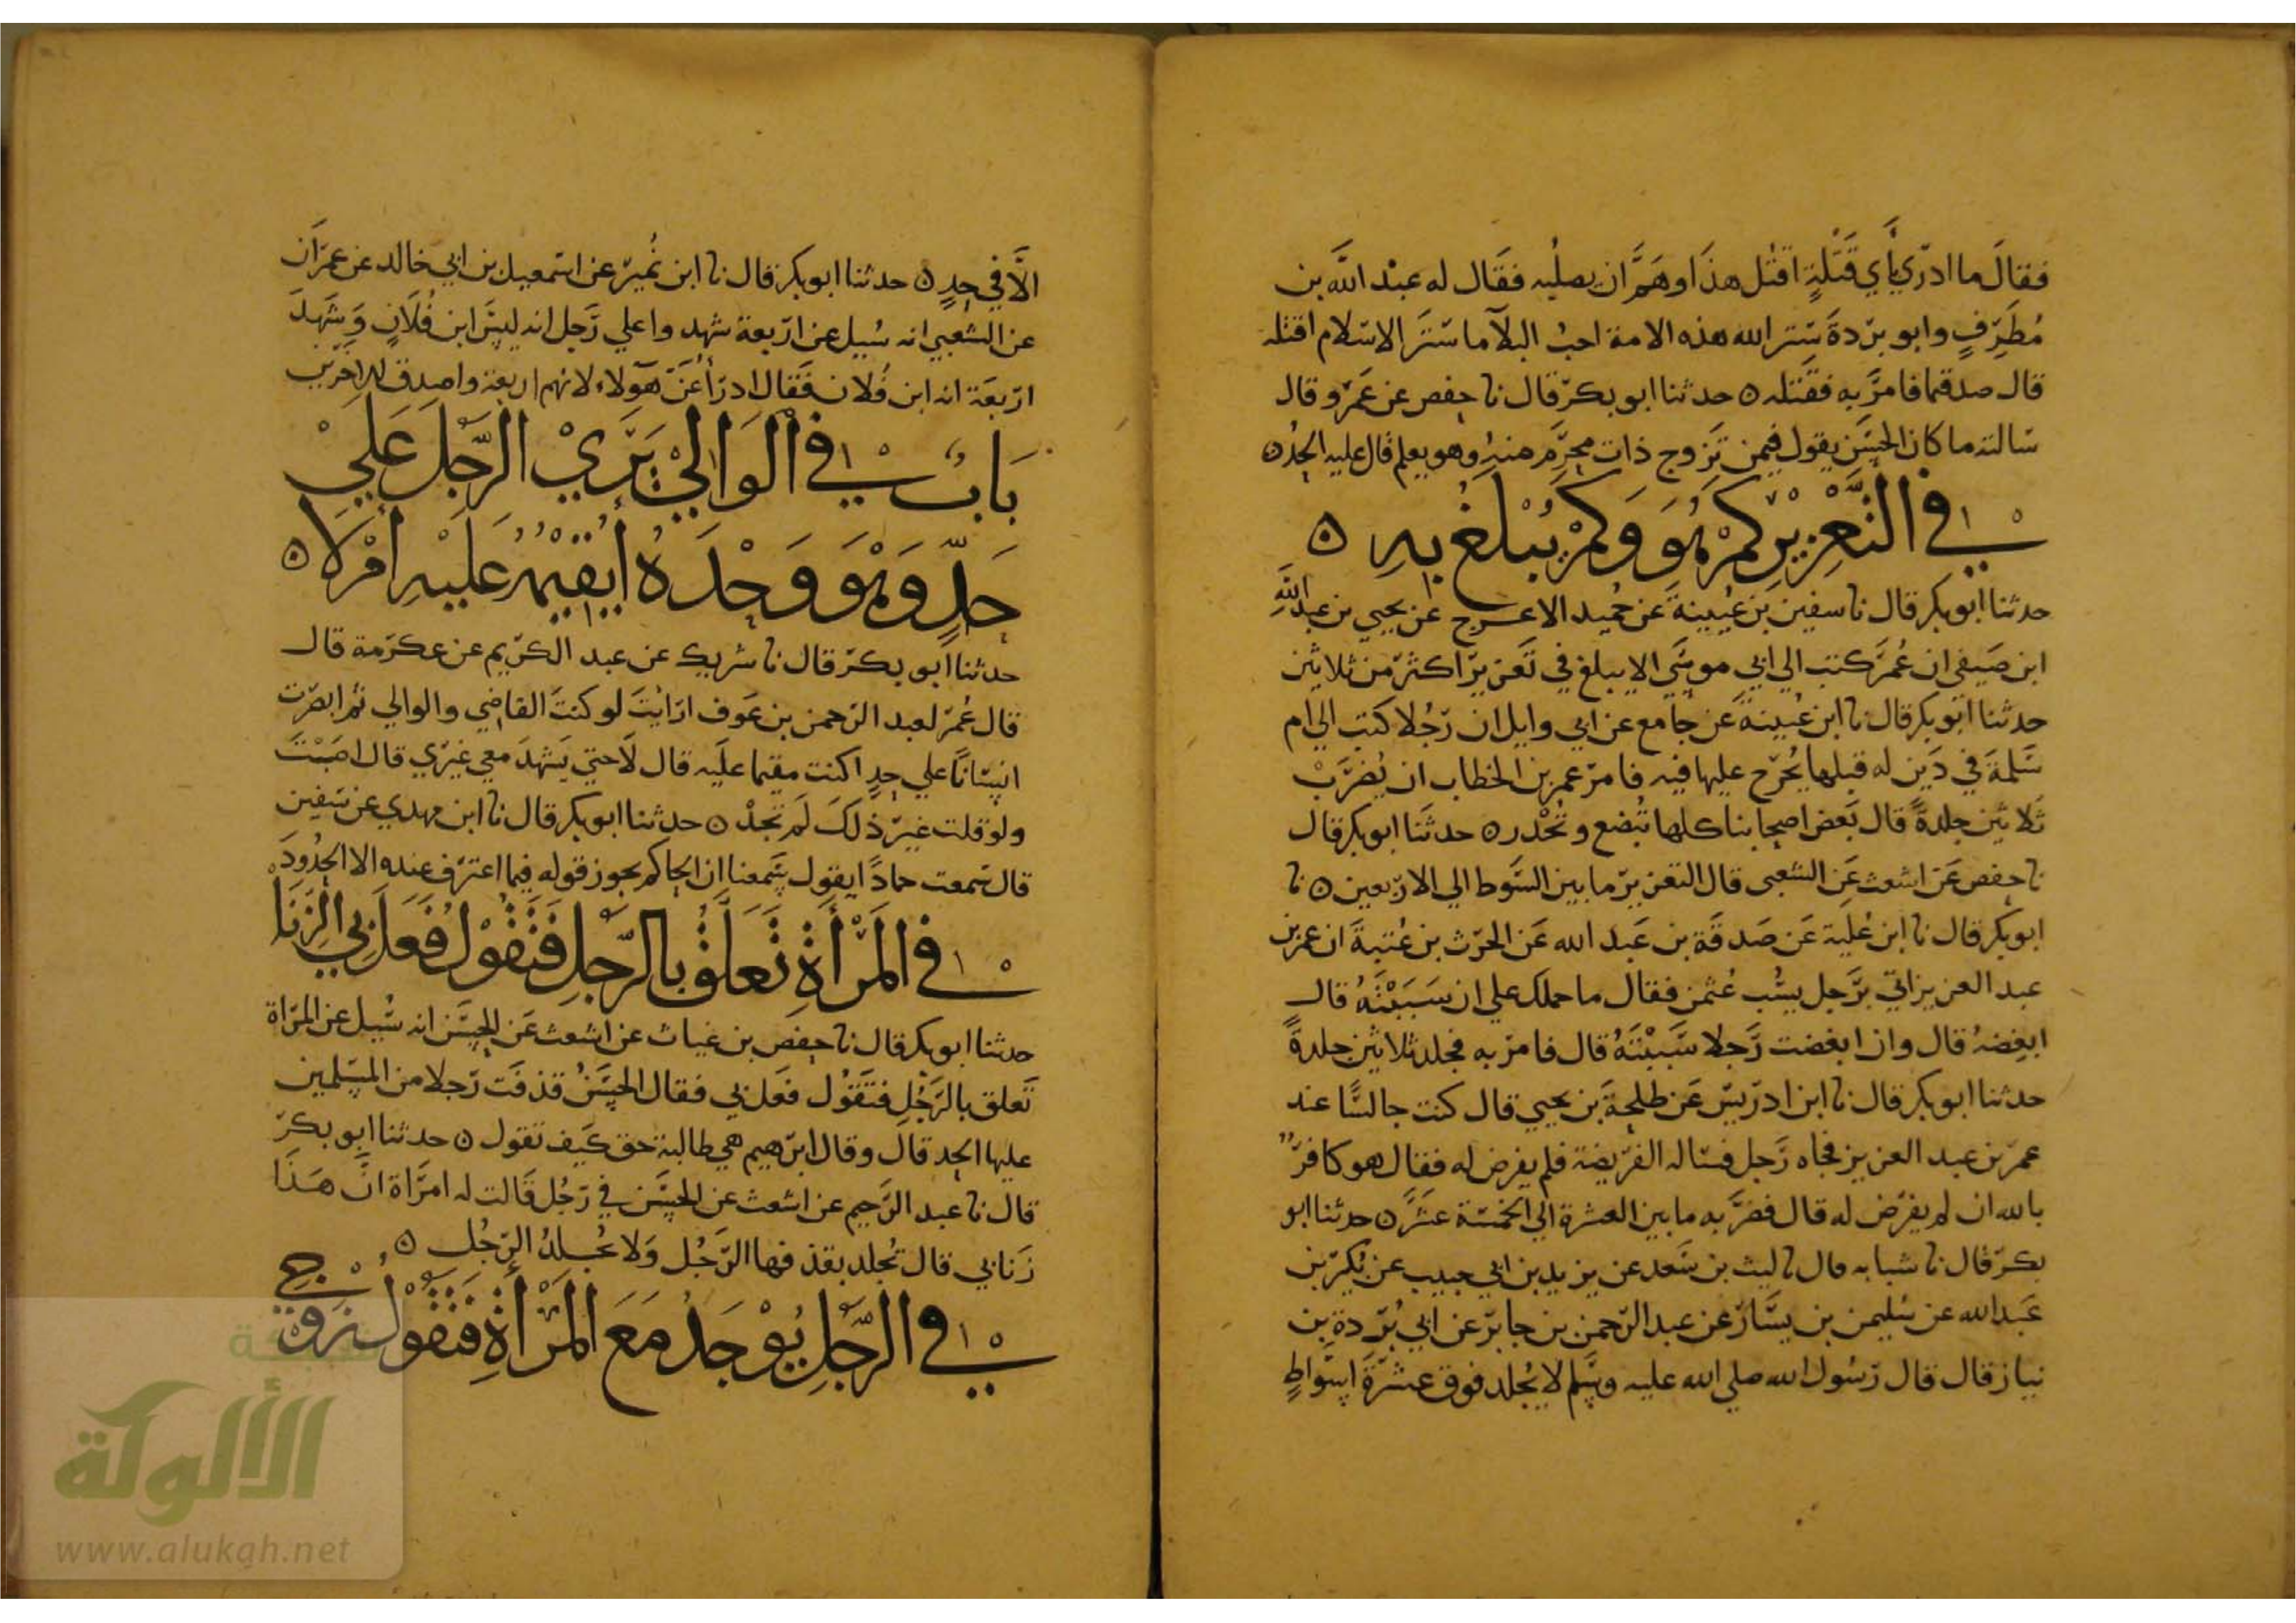 فقالَ ما ادرَي بأَي قَتْلَةٍ اقتُل هذَا وهَمَّ ان يصلُبه فقَال له عبد الله بن
مُطَرِّفٍ وابو بردةَ سَتر الله هذه الامة احبُ البلآ ما سَتَر الاسلام اقتله
قال صدقتما فامَرَ به فقَتله ه حدثنا ابو بكر قال نا حفص عن عَمرو قال
سَالته ما كان الحسَن يقول فيمن تَزوج ذات محرَم منهُ وهو يعلم قال عليه الحدُ ه
في التَّعْزِيْرِ كَمْ هُوَ وَكَمْ يُبْلَغُ بِهِ ه
حدثنا ابو بكر قال نا سفين بن عُيينةَ عن حُميد الاعرج عن يحيي بن عبد اللهِ
ابن صَيفي ان عُمرَ كتب الي ابي موسَي الا يبلغ في تَعزيرٍ اكثرَ من ثلاثين
حدثنا ابو بكر قال نا ابن عُيينةَ عَن جامع عن ابي وايل ان رَجُلا كتب الي ام
سَلمةَ في دَين له قبلها يُحرّج عليها فيه فامرَ عمر بن الخطاب ان يُضرَبْ
ثَلاثين جلدةً قال بَعض اصحابنا كلها تُبضع وتُحْدر ه حدثنَا ابو بكر قال
نا حفص عَن اشعث عَن الشعبي قال التعزير ما بين السَّوط الي الاربعين ه نا
ابو بكر قال نا ابن عُلية عَن صَدقَة بن عَبد الله عَن الحرث بن عُتبةَ ان عمر بن
عبد العزيز اتي برَجل يسُب عُثمن فقال ما حملك علي ان سَبَبْتَهُ قال
ابغِضهُ قال وان ابغضت رَجلا سَبَبْتَهُ قال فامرَ به فجلد ثلاثين جلدةً
حدثنا ابو بكر قال نا ابن ادريسَ عَن طلحةَ بن يحيي قال كنت جالسًا عند
عمر بن عبد العزيز فجاه رَجل فسَاله الفريضة فلم يفرض له فقال هو كافرٌ
بالله ان لم يفرَض له قال فضرَبه ما بين العشرة الي الخمسَة عشَر ه حدثنا ابو
بكر قال نا شبابه قال نا ليث بن سَعد عن يزيد بن ابي حبيب عن بُكير بن
عَبد الله عن سُليمن بن يسَار عن عبد الرحمن بن جابر عن ابي بُردة بن
نيار قال قال رَسُول الله صلي الله عليه وسَلم لا يُجلد فوق عشَرةَ اسوَاطٍ
الَّا في حدٍ ه حدثنا ابو بكر قال نا ابن نُمير عن اسمعيل بن ابي خالد عن عمرَان
عن الشعبي انه سُيل عن اربعة شهدوا علي رَجل انه ليسَ ابن فُلَانٍ وَشَهدَ
اربَعَة انه ابن فُلان فَقال ادرَأ عَنَ هَولاء لانهم اربعة واصدق للاخَرين
بَابٌ في الْوَالِيْ يَرَيْ الرَّجُلَ عَلَيْ
حَدٍّ وَهْوَ وَحْدَهُ أَيُقِيْمُهُ عَلَيْهِ أَمْ لَا ه
حدثنا ابو بكر قال نا شريك عن عبد الكريم عن عكرمة قال
قال عُمرَ لعبد الرحمن بن عَوف ارايْتَ لو كنتَ القاضي والوالي ثم ابصَرت
انسَانًا علي حدٍ اكنت مقيما علَيه قال لَا حتي يَشهدَ معي غيَري قال اصَبْتَ
ولو قلت غيرَ ذلكَ لَم تُجدْ ه حدثنا ابو بكر قال نا ابن مهدي عن سَفين
قال سَمعت حمادًا يقول سَمعنا ان الحاكم يجوز قوله فيما اعترَف عنده الا الحدُودَ
في المَرْأَةِ تَعَلَّقُ بِالرَّجُلِ فَتَقُوْلُ فَعَلَ بِي الزِّنَا
حدثنا ابو بكر قال نا حفص بن غياث عن اشعث عَن الحسَن انه سُيل عن المرَاة
تَعلق بالرَجُلِ فتَقُول فعَل بي فقال الحسَنُ قذفَت رَجلا من المسلمين
عليها الحد قالَ وقال ابرَهيم هي طالبة حق كيَف تقول ه حدثنا ابو بكر
قال نا عبد الرَحيم عن اشعث عن الحسَن في رَجُل قَالت له امرَاة انَ هَذَا
زَنا بي قال تُجلد بقذفها الرَّجُل وَلا يُجلدُ الرَّجُل ه
في الرَّجُلِ يُوْجَدُ مَعَ المَرْأَةِ فَتَقُوْلُ زَوْجِي
الألوكة
www.alukah.net